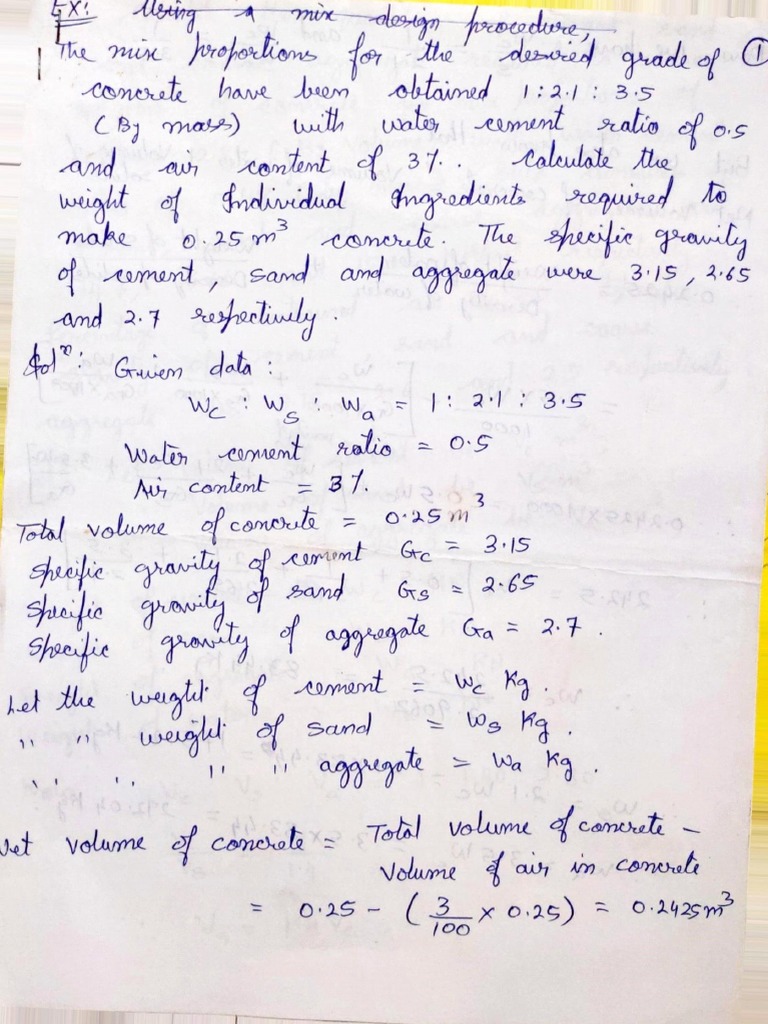 Ex: Using a mix design procedure,
The mix proportions for the desired grade of ①
concrete have been obtained 1:2.1 : 3.5
(By mass) with water cement ratio of 0.5
and air content of 3%. Calculate the
weight of Individual Ingredients required to
make 0.25m³ concrete. The specific gravity
of cement, sand and aggregate were 3.15, 2.65
and 2.7 respectively.
Solⁿ: Given data :
Wc : Ws : Wa = 1 : 2.1 : 3.5
Water cement ratio = 0.5
Air content = 3%.
Total volume of concrete = 0.25m³
Specific gravity of cement Gc = 3.15
Specific gravity of sand Gs = 2.65
Specific gravity of aggregate Ga = 2.7 .
Let the weight of cement = Wc Kg.
" " weight of sand = Ws Kg.
" " " " aggregate = Wa Kg.
Net volume of concrete = Total volume of concrete -
Volume of air in concrete
= 0.25 - (3/100 x 0.25) = 0.2425m³